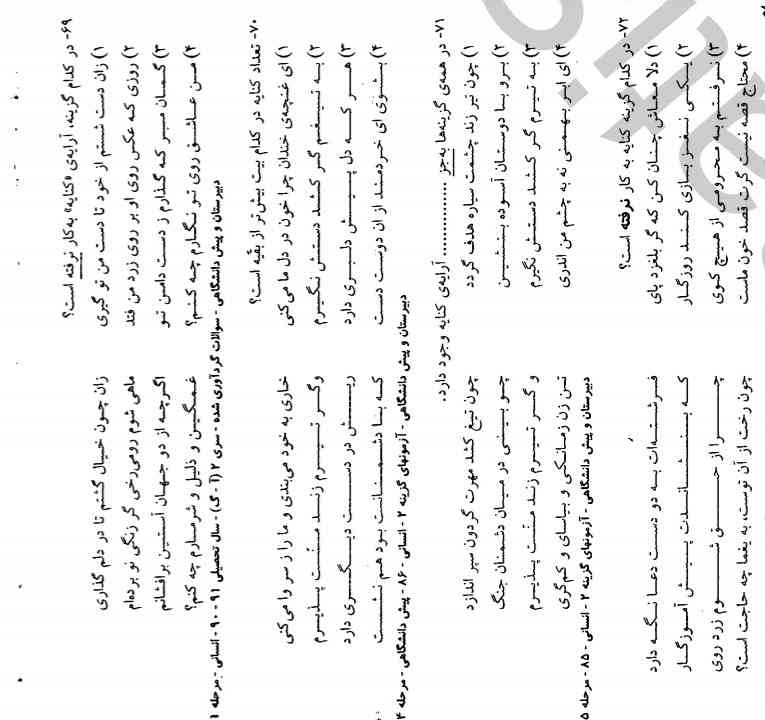 ۶۹- در کدام گزینه، آرایه‌ی «کنایه» به‌کار نرفته است؟
۱) زان دست شستم از خود تا دست من تو گیری زان چون خیال گشتم تا در دلم گذاری
۲) روزی که عکس روی او بر روی زرد من فتد ماهی شوم رومی‌رخی گر زنگی نو برده‌ام
۳) گمان مبر که گذارم ز دست دامن تو اگرچه از دو جهان آستین برافشانم
۴) من عاشق روی تو نگارم چه کنم؟ غمگین و ذلیل و شرمسارم چه کنم؟
دبیرستان و پیش دانشگاهی - سوالات گردآوری شده - سری ۲ (آ - گ) - سال تحصیلی ۹۱ - ۹۰ - انسانی - مرحله ۱
۷۰- تعداد کنایه در کدام بیت بیش‌تر از بقیّه است؟
۱) ای غنچه‌ی خندان چرا خون در دل ما می‌کنی خاری به خود می‌بندی و ما را ز سر وا می‌کنی
۲) به تیغم گر کشد دستش نگیرم وگر تیرم زند منّت پذیرم
۳) هر که دل پیش دلبری دارد ریش در دست دیگری دارد
۴) بشوی ای خردمند از آن دوست دست که بنا دشمنانت بود هم نشست
دبیرستان و پیش دانشگاهی - آزمونهای گزینه ۲ - انسانی - ۸۶ - پیش دانشگاهی - مرحله ۴
۷۱- در همه‌ی گزینه‌ها به‌جز .................. آرایه‌ی کنایه وجود دارد.
۱) چون تیر زند چشمت سیاره هدف گردد چون تیغ کشد مهرت گردون سپر اندازد
۲) برو با دوستان آسوده بنشین چو بینی در میان دشمنان جنگ
۳) به تیرم گر کشد دستش نگیرم و گر تیرم زند منّت پذیرم
۴) ای ابر بهمنی نه به چشم من اندری تن زن زمانکی و بیاسای و کم‌گری
دبیرستان و پیش دانشگاهی - آزمونهای گزینه ۲ - انسانی - ۸۵ - مرحله ۵
۷۲- در کدام گزینه کنایه به کار نرفته است؟
۱) دلا معاش چنان کن که گر بلغزد پای فرشته‌ات به دو دست دعا نگه دارد
۲) یکی نغز بازی کند روزگار که بنشاندت پیش آموزگار
۳) نرفتم به محرومی از هیچ کوی چرا از حق شوم زرد روی
۴) محتاج قصه نیست گرت قصد خون ماست چون رخت از آن توست، به یغما چه حاجت است؟